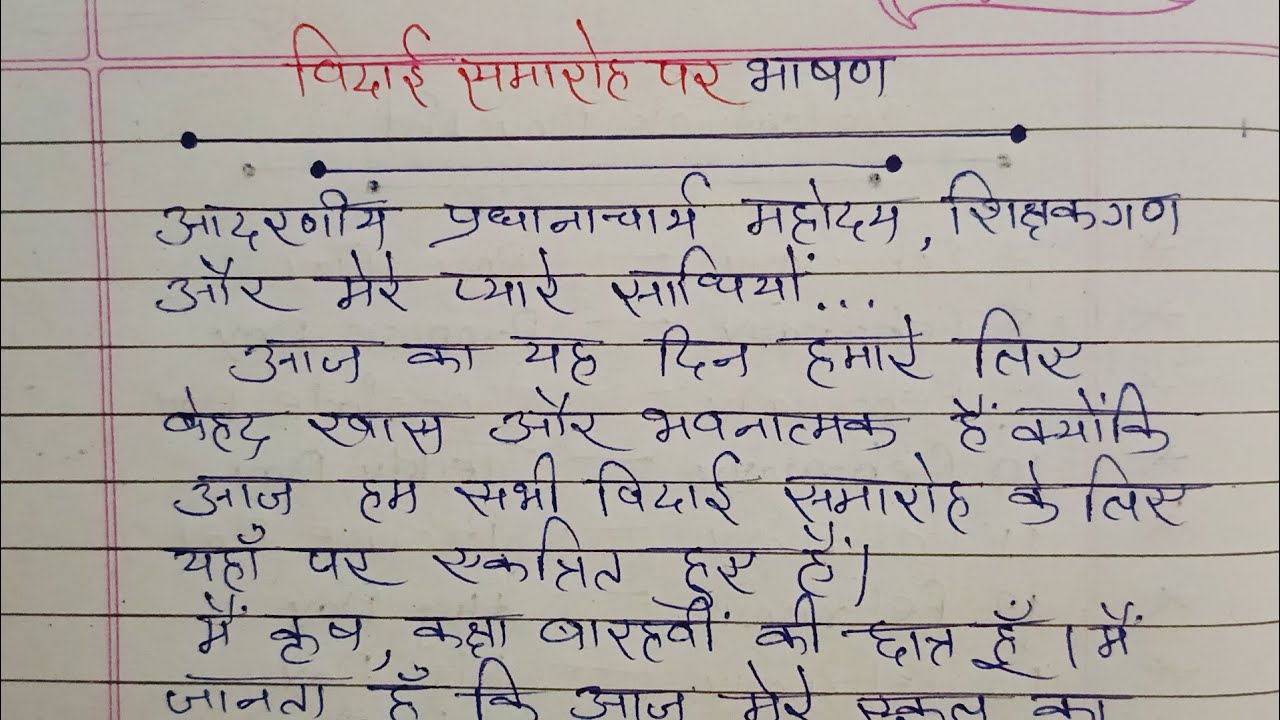 विदाई समारोह पर भाषण
आदरणीय प्रधानाचार्य महोदय, शिक्षकगण
और मेरे प्यारे साथियों...
आज का यह दिन हमारे लिए
बेहद खास और भवनात्मक हैं क्योंकि
आज हम सभी विदाई समारोह के लिए
यहाँ पर एकत्रित हुए हैं।
मैं कृष, कक्षा बारहवीं की छात्र हूँ। मैं
जानता हूँ कि आज मेरे स्कूल का